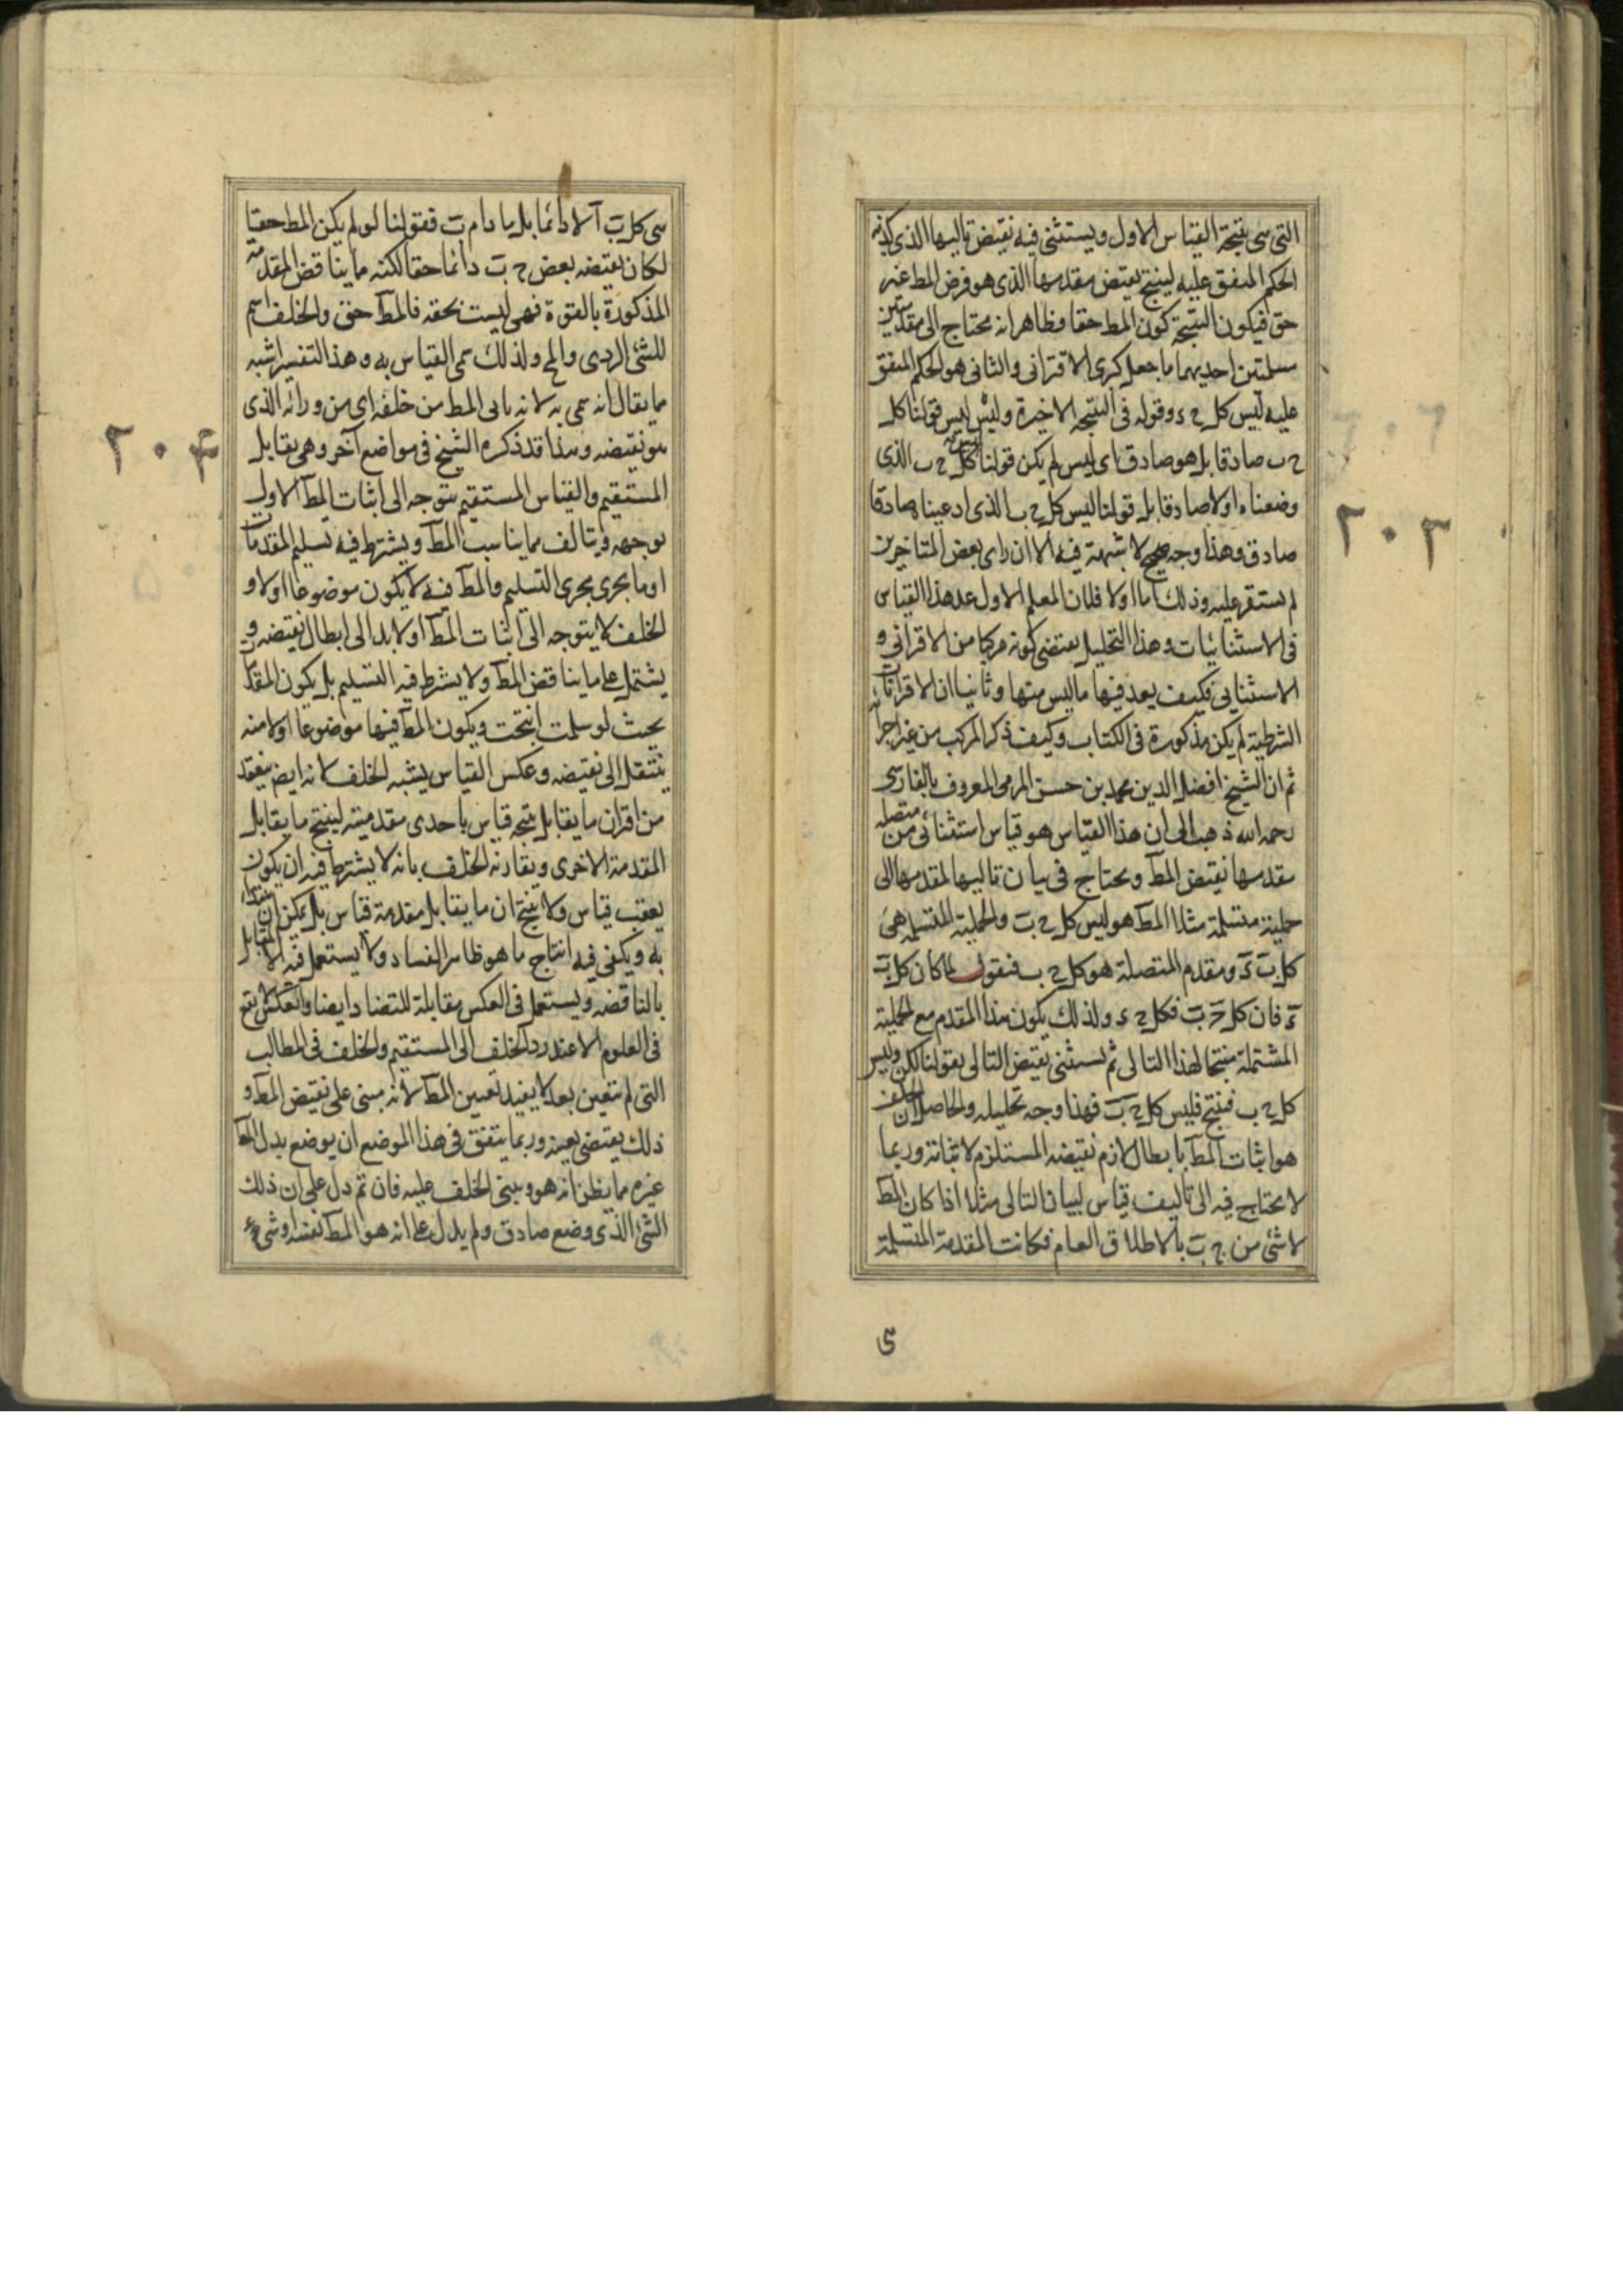 التى هى نتيجة القياس الاول ويستثنى فيه نقيض تاليها الذى كذبه
الحكم المتفق عليه لينتج نقيض مقدمها الذى هو فرض المط غير
حق فيكون النتيجة كون المط حقا وظاهر انه محتاج الى مقدمتين
مسلمتين احديهما ما جعل كبرى الاقترانى والثانى هو الحكم المتفق
عليه ليس كل ج ء وقوله فى النتيجة الاخيرة وليس ليس قولنا كل
ج ب صادقا بل هو صادق اى ليس لم يكن قولنا ليس كل ج ب الذى
وضعناه اولا صادقا بل قولنا ليس كل ج ب الذى ادعينا صادقا
صادق وهذا وجه صحيح لا شبهة فيه الا ان راى بعض المتاخرين
لم يستقر عليه وذلك اما اولا فلان المعلم الاول عد هذا القياس
فى الاستثنائيات وهذا التحليل يقتضى كونه مركبا من الاقترانى و
الاستثنايى فكيف يعد فيها ما ليس منها وثانيا ان الاقترانات
الشرطية لم يكن مذكورة فى الكتاب وكيف ذكر المركب من غير اجزائه
ثم ان الشيخ افضل الدين محمد بن حسن المرمى المعروف بالفارسى
رحمه الله ذهب الى ان هذا القياس هو قياس استثنائى من متصلة
مقدمها نقيض المط ويحتاج فى بيان تاليها لمقدمها الى
حملية متسلمة مثلا المط هو ليس كل ج ب والحملية المتسلمة هى
كل ب ء ومقدم المتصلة هو كل ج ب فنقول لما كان كل ب
ء فان كل ج ب فكل ج ء ولذلك يكون هذا المقدم مع الحملية
المشتملة منتجا لهذا التالى ثم يستثنى نقيض التالى بقولنا لكن وليس
كل ج ب فينتج فليس كل ج ب فهذا وجه تحليله والحاصل ان الخلف
هو اثبات المط بابطال لازم نقيضه المستلزم لاثباته وربما
لا يحتاج فيه الى تاليف قياس لبيان التالى مثلا اذا كان المط
لا شئ من ج ب بالاطلاق العام فكانت المقدمة المتسلمة
٢٠٣
هى كل ب آ لا دائما بل ما دام ب فقولنا لو لم يكن المط حقا
لكان نقيضه بعض ج ب دائما حقا لكنه مما يناقض المقدمة
المذكورة بالقوة فهى ليست بحقه فالمط حق والخلف اسم
للشئ الردى والمح ولذلك سمى القياس به وهذا التفسير اشبه
مما يقال انه سمى به لانه ياتى المط من خلفه اى من ورائه الذى
هو نقيضه وهذا قد ذكره الشيخ فى مواضع آخر وهى يقابل
المستقيم والقياس المستقيم يتوجه الى اثبات المط الاول
توجهه ويتالف مما يناسب المط ويشترط فيه تسليم المقدمات
او ما يجرى مجرى التسليم والمط فيه لا يكون موضوعا اولا و
الخلف لا يتوجه الى اثبات المط اولا بل الى ابطال نقيضه و
يشتمل على ما يناقض المط ولا يشرط فيه التسليم بل يكون المقدمات
بحيث لو سلمت انتجت ويكون المط فيها موضوعا اولا منه
ينتقل الى نقيضه وعكس القياس يشبه الخلف لانه ايض ينعقد
من اقران ما يقابل نتيجة قياس باحدى مقدمتيه لينتج ما يقابل
المقدمة الاخرى ويفارقه الخلف بانه لا يشترط فيه ان يكون
يعقب قياس ولا ينتج ان ما يقابل مقدمة قياس بل يمكن ان يبتداء
به ويكفى فيه انتاج ما هو ظاهر الفساد ولا يستعمل فيه الا المقابل
بالناقضه ويستعمل فى العكس مقابلة للتضاد ايضا والعكس لا يقع
فى العلوم الا عند رد الخلف الى المستقيم والخلف فى المطالب
التى لم يتعين بعد لا يفيد تعيين المط لانه مبنى على نقيض المط و
ذلك يقتضى تعينه وربما يتفق فى هذا الموضع ان يوضع بدل المط
غيره مما يظن انه هو ويبنى الخلف عليه فان تم دل على ان ذلك
الشئ الذى وضع صادق ولم يدل على انه هو المط نفسه او شئ
٢٠۴